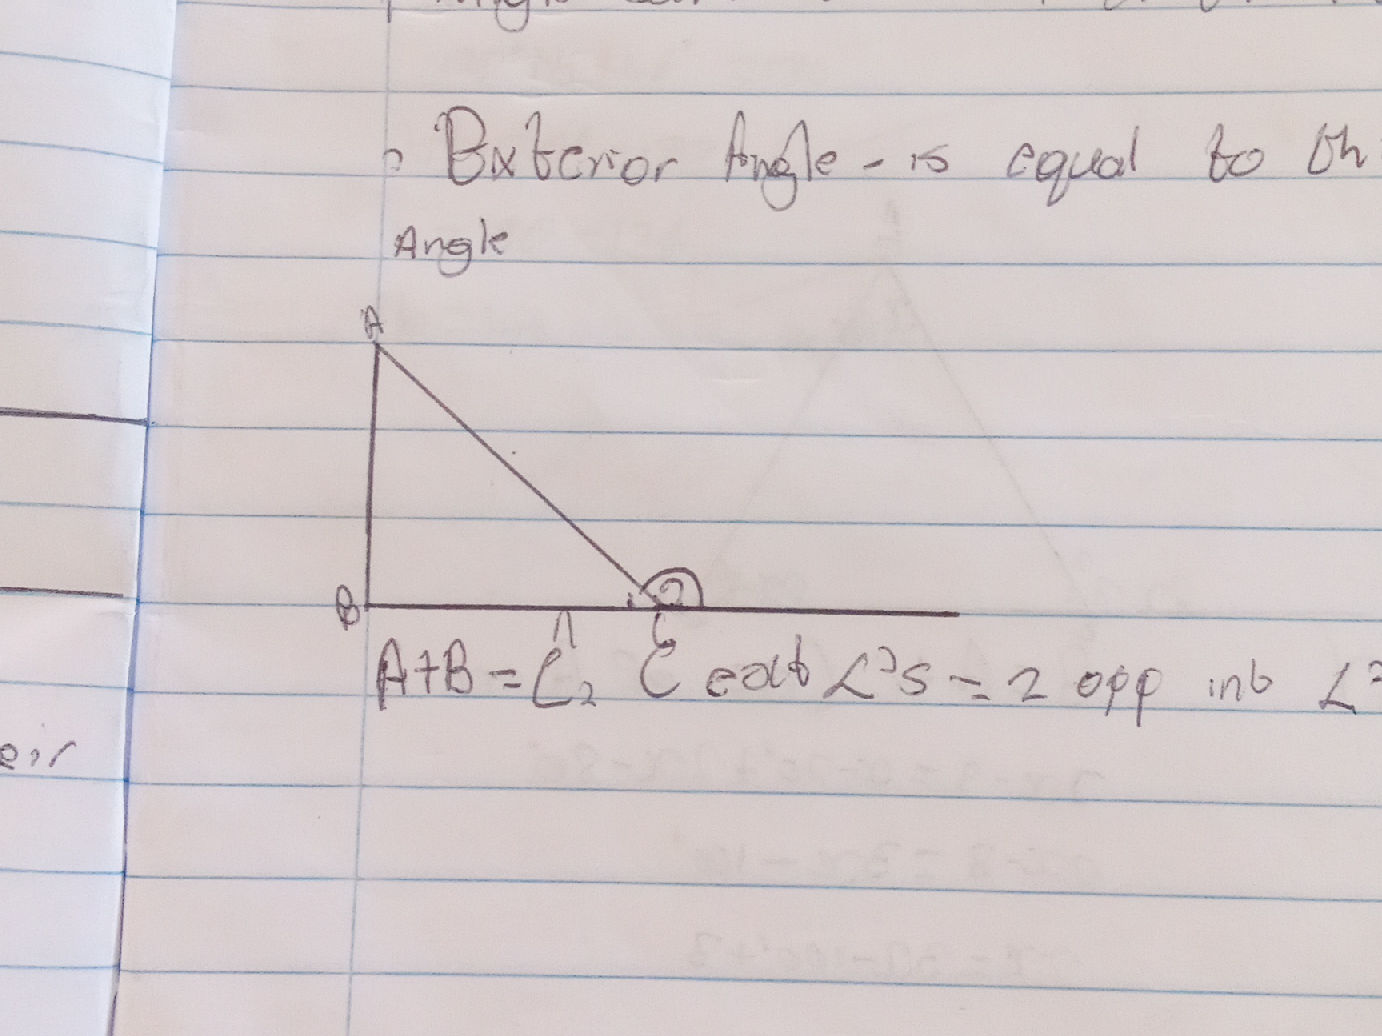 Exterior Angle - is equal to th
Angle
A
B
1 2
C
A+B = Ĉ2 (ext L's = 2 opp int L's
eir